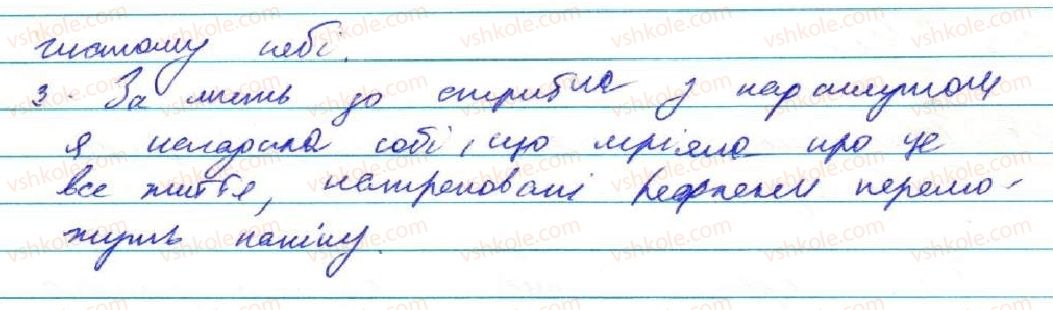 чистому небі.
3. За мить до стрибка з парашутом
я нагадала собі, що мріяла про це
все життя, натреновані рефлекси перемо-
жуть паніку.